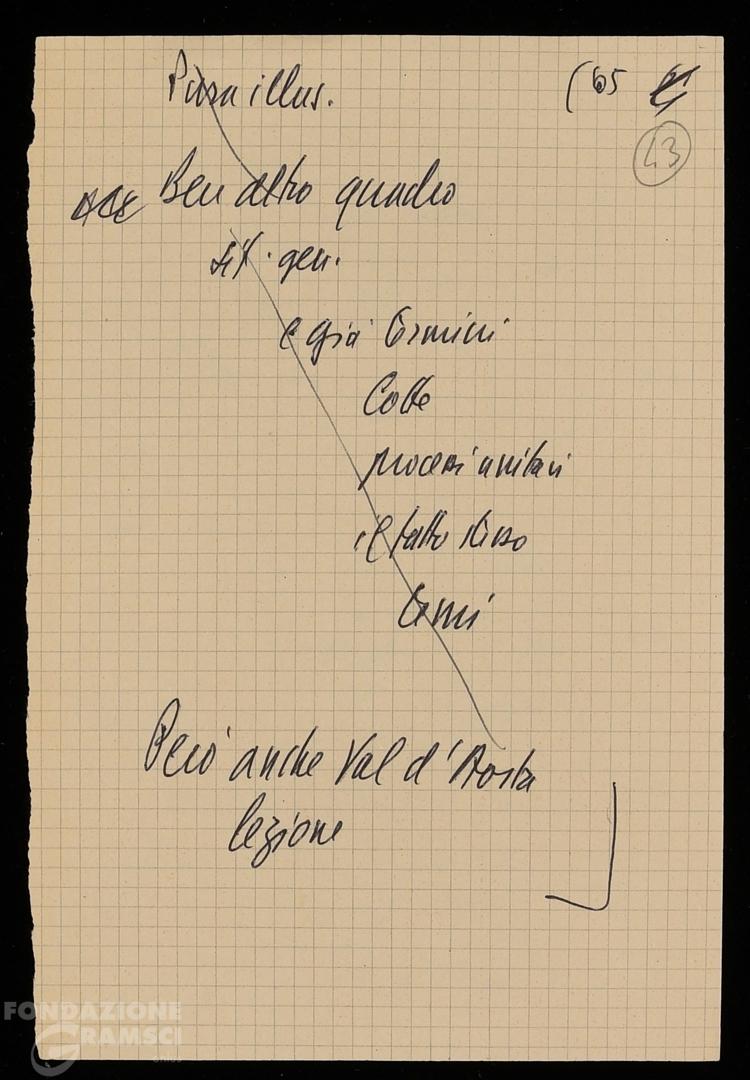 Pura illus. (65
43
Ben altro quadro
sit. gen.
e già termini
Colle
processi unitari
il fatto stesso
temi
Però anche Val d'Aosta
lezione
FONDAZIONE
GRAMSCI